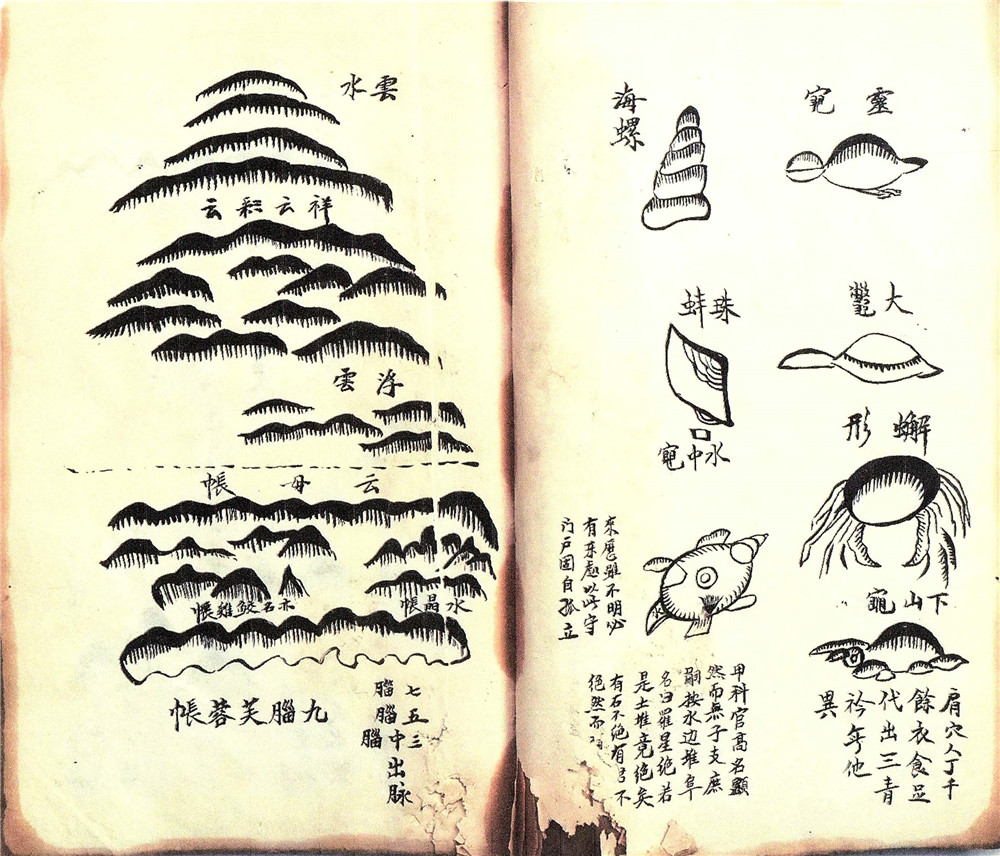 靈龜
大鼈
蠏形
下山龜
肩穴人丁千
餘衣食足
代出三青
衿年他
異
海螺
珠蚌
水中龜
來歷雖不明必
有奉處以此守
门戸固自孤立
甲科官高名顯
然而無子支庶
嗣按水边堆阜
名曰羅星绝若
是土堆竟绝矣
有石不绝有弓不
绝然不
雲水
祥云彩云
浮雲
云母帳
水晶帳
亦名鲛雞帳
九腦芙蓉帳
七腦
五腦
三中腦
出脉